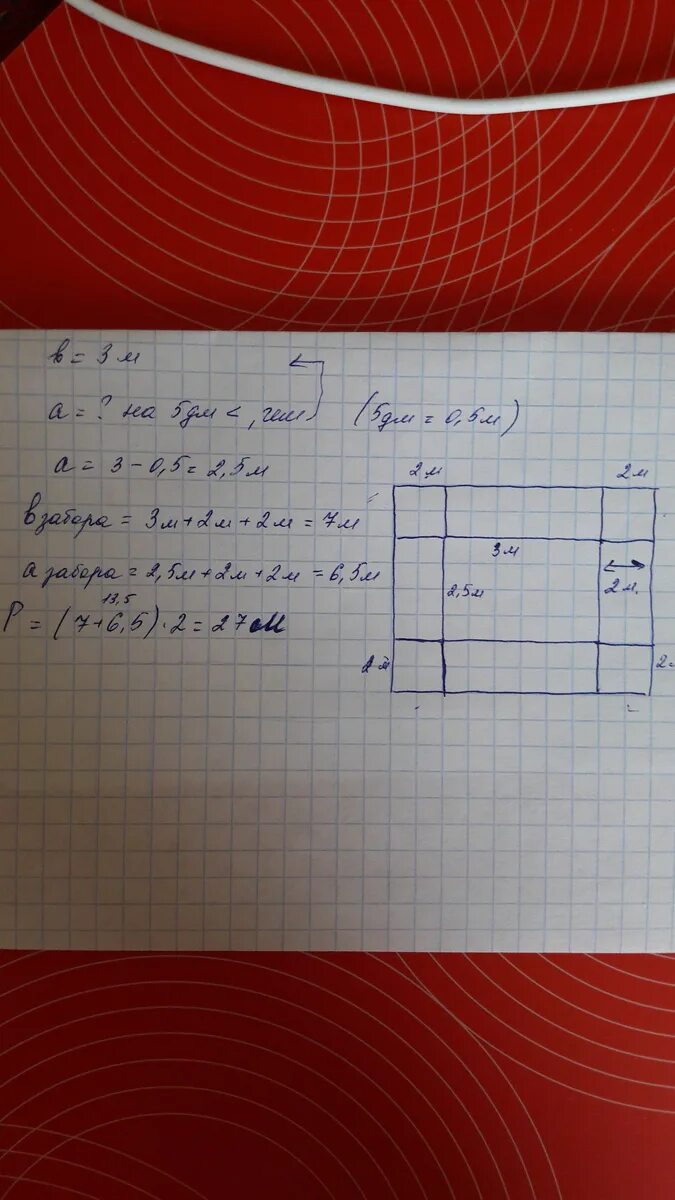 в = 3 м
а = ? на 5дм <, чем (5дм = 0,5м)
а = 3 - 0,5 = 2,5м
в забора = 3м+2м+2м = 7м
а забора = 2,5м+2м+2м = 6,5м
13,5
P = (7+6,5)·2 = 27 м
2м 2м
3м
2,5м 2м.
2м 2